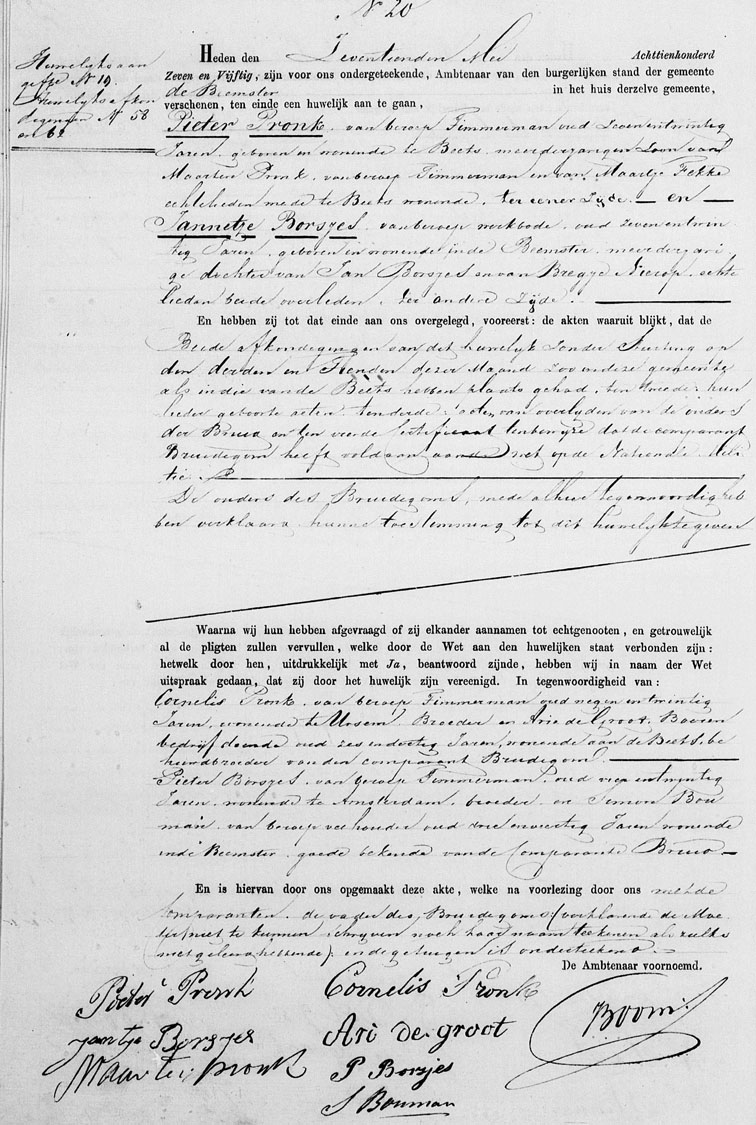 N 20
Huwelijksaan
gifte N 19.
Huwelijksafkon
degingen N 58
en 62
Heden den Zeventienden Mei Achttienhonderd
Zeven en Vijftig, zijn voor ons ondergeteekende, Ambtenaar van den burgerlijken stand der gemeente
de Beemster in het huis derzelve gemeente,
verschenen, ten einde een huwelijk aan te gaan,
Pieter Pronk, van beroep Timmerman oud Zevenentwintig
Jaren, geboren en wonende te Beets, meerderjarigen Zoon van
Maarten Pronk, van beroep Timmerman en van Maartje Fekke
echtelieden mede te Beets wonende, ter eener Zijde. — en —
Jannetje Borsjes, van beroep werkbode, oud zevenentwin
tig Jaren, geboren en wonende in de Beemster, meerderjari
ge dochter van Jan Borsjes en van Bregje Nierop, echte
lieden beide overleden, ter andere Zijde.
En hebben zij tot dat einde aan ons overgelegd, vooreerst: de akten waaruit blijkt, dat de
Beide afkondegingen van dit huwelijk Zonder Stuiting op
den derden en Tienden dezer Maand Zoo in deze gemeente
als in die van de Beets hebben plaats gehad, ten tweede: hun
lieder geboorte acten, ten derde: acten van overlyden van de ouders
der Bruid en ten vierde Certificaat ten bewijze dat de comparant
Bruidegom heeft voldaan aan de wet op de Nationale Mili
tie.
De ouders des Bruidegoms, mede alhier tegenwoordig heb
ben verklaard hunne toestemming tot dit huwelijk te geven
Waarna wij hun hebben afgevraagd of zij elkander aannamen tot echtgenooten, en getrouwelijk
al de pligten zullen vervullen, welke door de Wet aan den huwelijken staat verbonden zijn:
hetwelk door hen, uitdrukkelijk met Ja, beantwoord zijnde, hebben wij in naam der Wet
uitspraak gedaan, dat zij door het huwelijk zijn vereenigd. In tegenwoordigheid van:
Cornelis Pronk, van beroep Timmerman oud negenentwintig
Jaren, wonende te Ursem, Broeder en Arie de Groot, Boeren
bedrijf doende oud zesendertig Jaren, wonende aan de Beets, be
huwdbroeder van den comparant Bruidegom.
Pieter Borsjes, van beroep Timmerman, oud vier entwintig
Jaren, wonende te Amsterdam, broeder en Simon Bou
man, van beroep veehouder oud drie enveertig Jaren wonende
in de Beemster, goede bekende van de Comparante Bruid —
En is hiervan door ons opgemaakt deze akte, welke na voorlezing door ons met de
Comparanten, de vader des Bruidegoms (verklarende de Moe
der niet te kunnen schrijven noch haar naam teekenen als zulks
niet geleerd hebbende) en de getuigen is onderteekend
De Ambtenaar voornoemd.
Pieter Pronk Cornelis Pronk
Jantje Borsjes Ari de groot Boom
Maarten pronk P Borsjes
S Bouman